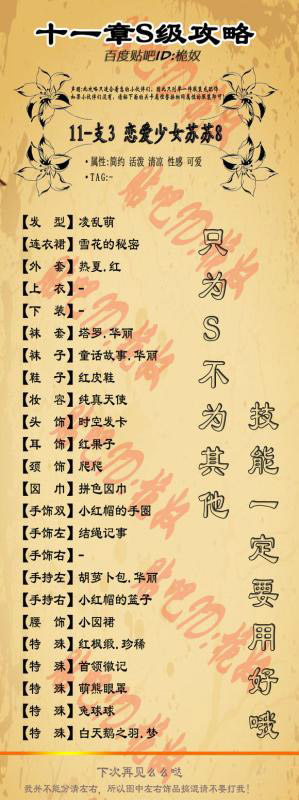 十一章S级攻略
百度贴吧ID:桅奴
声明:此攻略只适合着急的小伙伴们,因此只列单一件服装或配饰
如果小伙伴们没有,请按下面的关卡属性替换相同属性的服装即可
11-支3 恋爱少女苏苏8
·属性:简约 活泼 清凉 性感 可爱
·TAG:-
【发 型】凌乱萌
【连衣裙】雪花的秘密
【外 套】热夏.红
【上 衣】-
【下 装】-
【袜 套】塔罗.华丽
【袜 子】童话故事.华丽
【鞋 子】红皮鞋
【妆 容】纯真天使
【头 饰】时空发卡
【耳 饰】红果子
【颈 饰】爬爬
【围 巾】拼色围巾
【手饰双】小红帽的手圈
【手饰左】结绳记事
【手饰右】-
【手持左】胡萝卜包.华丽
【手持右】小红帽的篮子
【腰 饰】小围裙
【特 殊】红枫缎.珍稀
【特 殊】首领徽记
【特 殊】萌熊眼罩
【特 殊】兔球球
【特 殊】白天鹅之羽.梦
只为S不为其他
技能一定要用好哦
贴吧ID:桅奴
贴吧ID:桅奴
贴吧ID:桅奴
贴吧ID:桅奴
下次再见么么哒
我并不能分清左右,所以图中左右饰品搞混请不要打我!